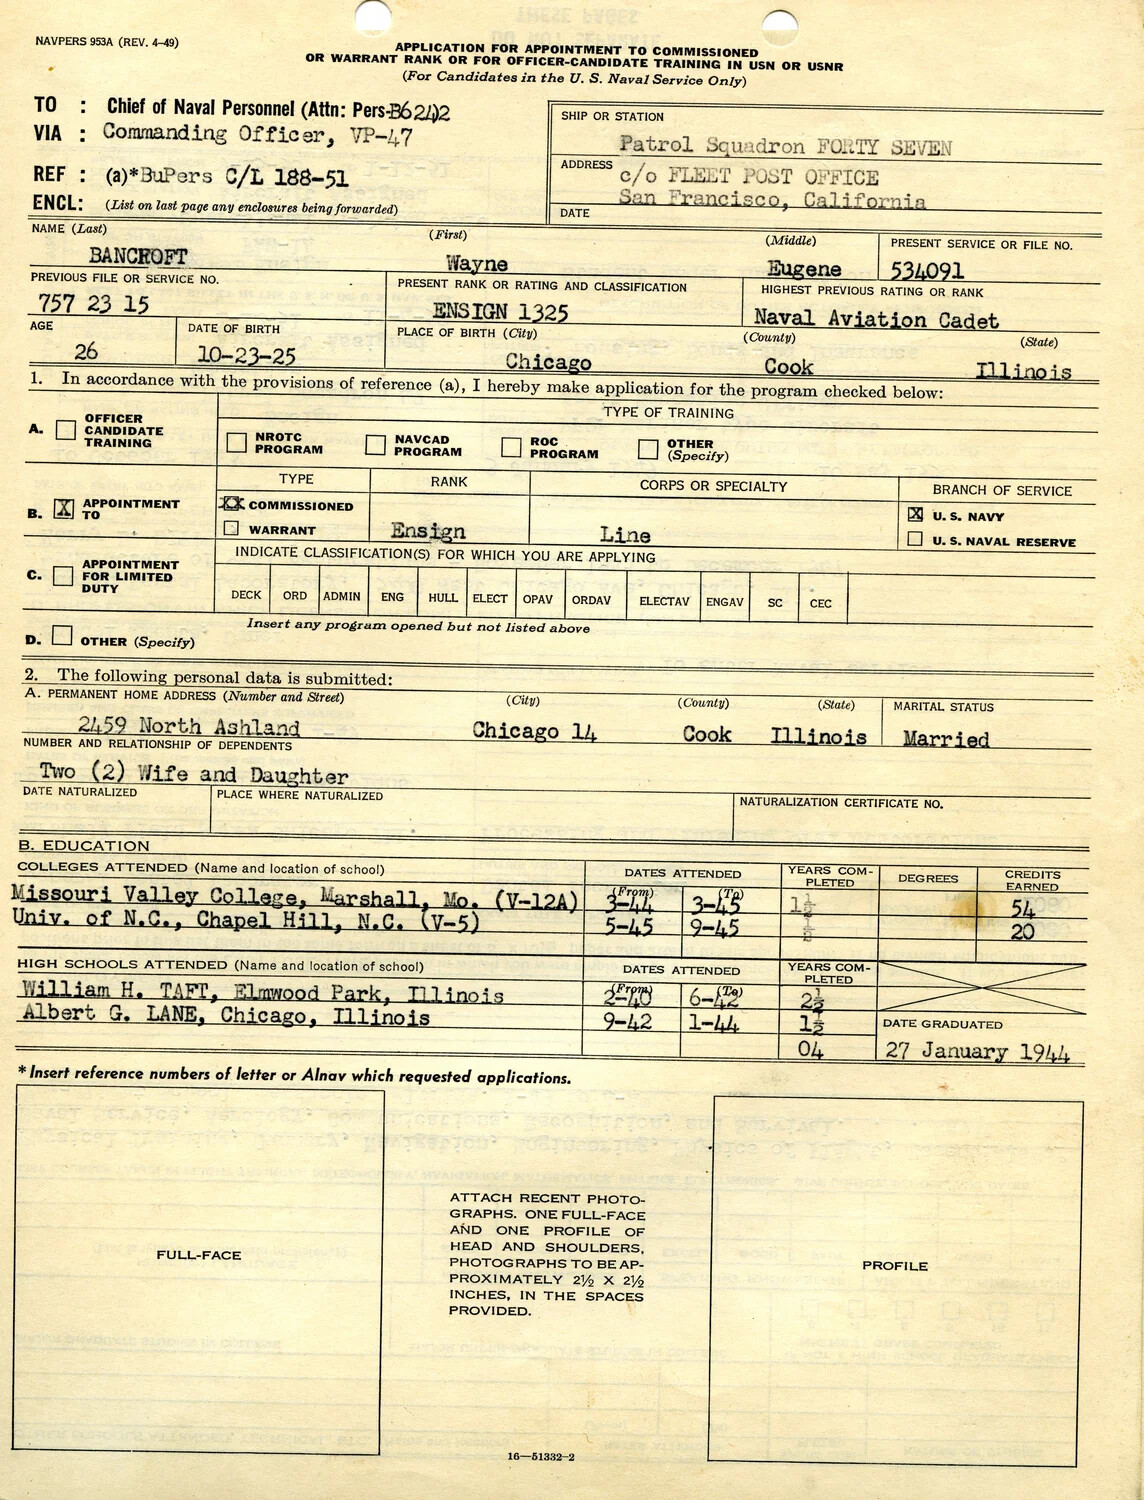 NAVPERS 953A (REV. 4-49)
APPLICATION FOR APPOINTMENT TO COMMISSIONED
OR WARRANT RANK OR FOR OFFICER-CANDIDATE TRAINING IN USN OR USNR
(For Candidates in the U. S. Naval Service Only)
TO : Chief of Naval Personnel (Attn: Pers-B6242
VIA : Commanding Officer, VP-47
REF : (a)*BuPers C/L 188-51
ENCL: (List on last page any enclosures being forwarded)
SHIP OR STATION
Patrol Squadron FORTY SEVEN
ADDRESS c/o FLEET POST OFFICE
San Francisco, California
DATE
NAME (Last) (First) (Middle) PRESENT SERVICE OR FILE NO.
BANCROFT Wayne Eugene 534091
PREVIOUS FILE OR SERVICE NO. PRESENT RANK OR RATING AND CLASSIFICATION HIGHEST PREVIOUS RATING OR RANK
757 23 15 ENSIGN 1325 Naval Aviation Cadet
AGE DATE OF BIRTH PLACE OF BIRTH (City) (County) (State)
26 10-23-25 Chicago Cook Illinois
1. In accordance with the provisions of reference (a), I hereby make application for the program checked below:
TYPE OF TRAINING
A. OFFICER CANDIDATE TRAINING NROTC PROGRAM NAVCAD PROGRAM ROC PROGRAM OTHER (Specify)
TYPE RANK CORPS OR SPECIALTY BRANCH OF SERVICE
B. X APPOINTMENT TO XX COMMISSIONED X U. S. NAVY
WARRANT Ensign Line U. S. NAVAL RESERVE
INDICATE CLASSIFICATION(S) FOR WHICH YOU ARE APPLYING
C. APPOINTMENT FOR LIMITED DUTY
DECK ORD ADMIN ENG HULL ELECT OPAV ORDAV ELECTAV ENGAV SC CEC
Insert any program opened but not listed above
D. OTHER (Specify)
2. The following personal data is submitted:
A. PERMANENT HOME ADDRESS (Number and Street) (City) (County) (State) MARITAL STATUS
2459 North Ashland Chicago 14 Cook Illinois Married
NUMBER AND RELATIONSHIP OF DEPENDENTS
Two (2) Wife and Daughter
DATE NATURALIZED PLACE WHERE NATURALIZED NATURALIZATION CERTIFICATE NO.
B. EDUCATION
COLLEGES ATTENDED (Name and location of school) DATES ATTENDED YEARS COMPLETED DEGREES CREDITS EARNED
(From) (To)
Missouri Valley College, Marshall, Mo. (V-12A) 3-44 3-45 1½ 54
Univ. of N.C., Chapel Hill, N.C. (V-5) 5-45 9-45 ½ 20
HIGH SCHOOLS ATTENDED (Name and location of school) DATES ATTENDED YEARS COMPLETED
(From) (To)
William H. TAFT, Elmwood Park, Illinois 2-40 6-42 2½
Albert G. LANE, Chicago, Illinois 9-42 1-44 1½ DATE GRADUATED
04 27 January 1944
*Insert reference numbers of letter or Alnav which requested applications.
FULL-FACE
ATTACH RECENT PHOTO-
GRAPHS. ONE FULL-FACE
AND ONE PROFILE OF
HEAD AND SHOULDERS,
PHOTOGRAPHS TO BE AP-
PROXIMATELY 2½ X 2½
INCHES, IN THE SPACES
PROVIDED.
PROFILE
16—51332-2